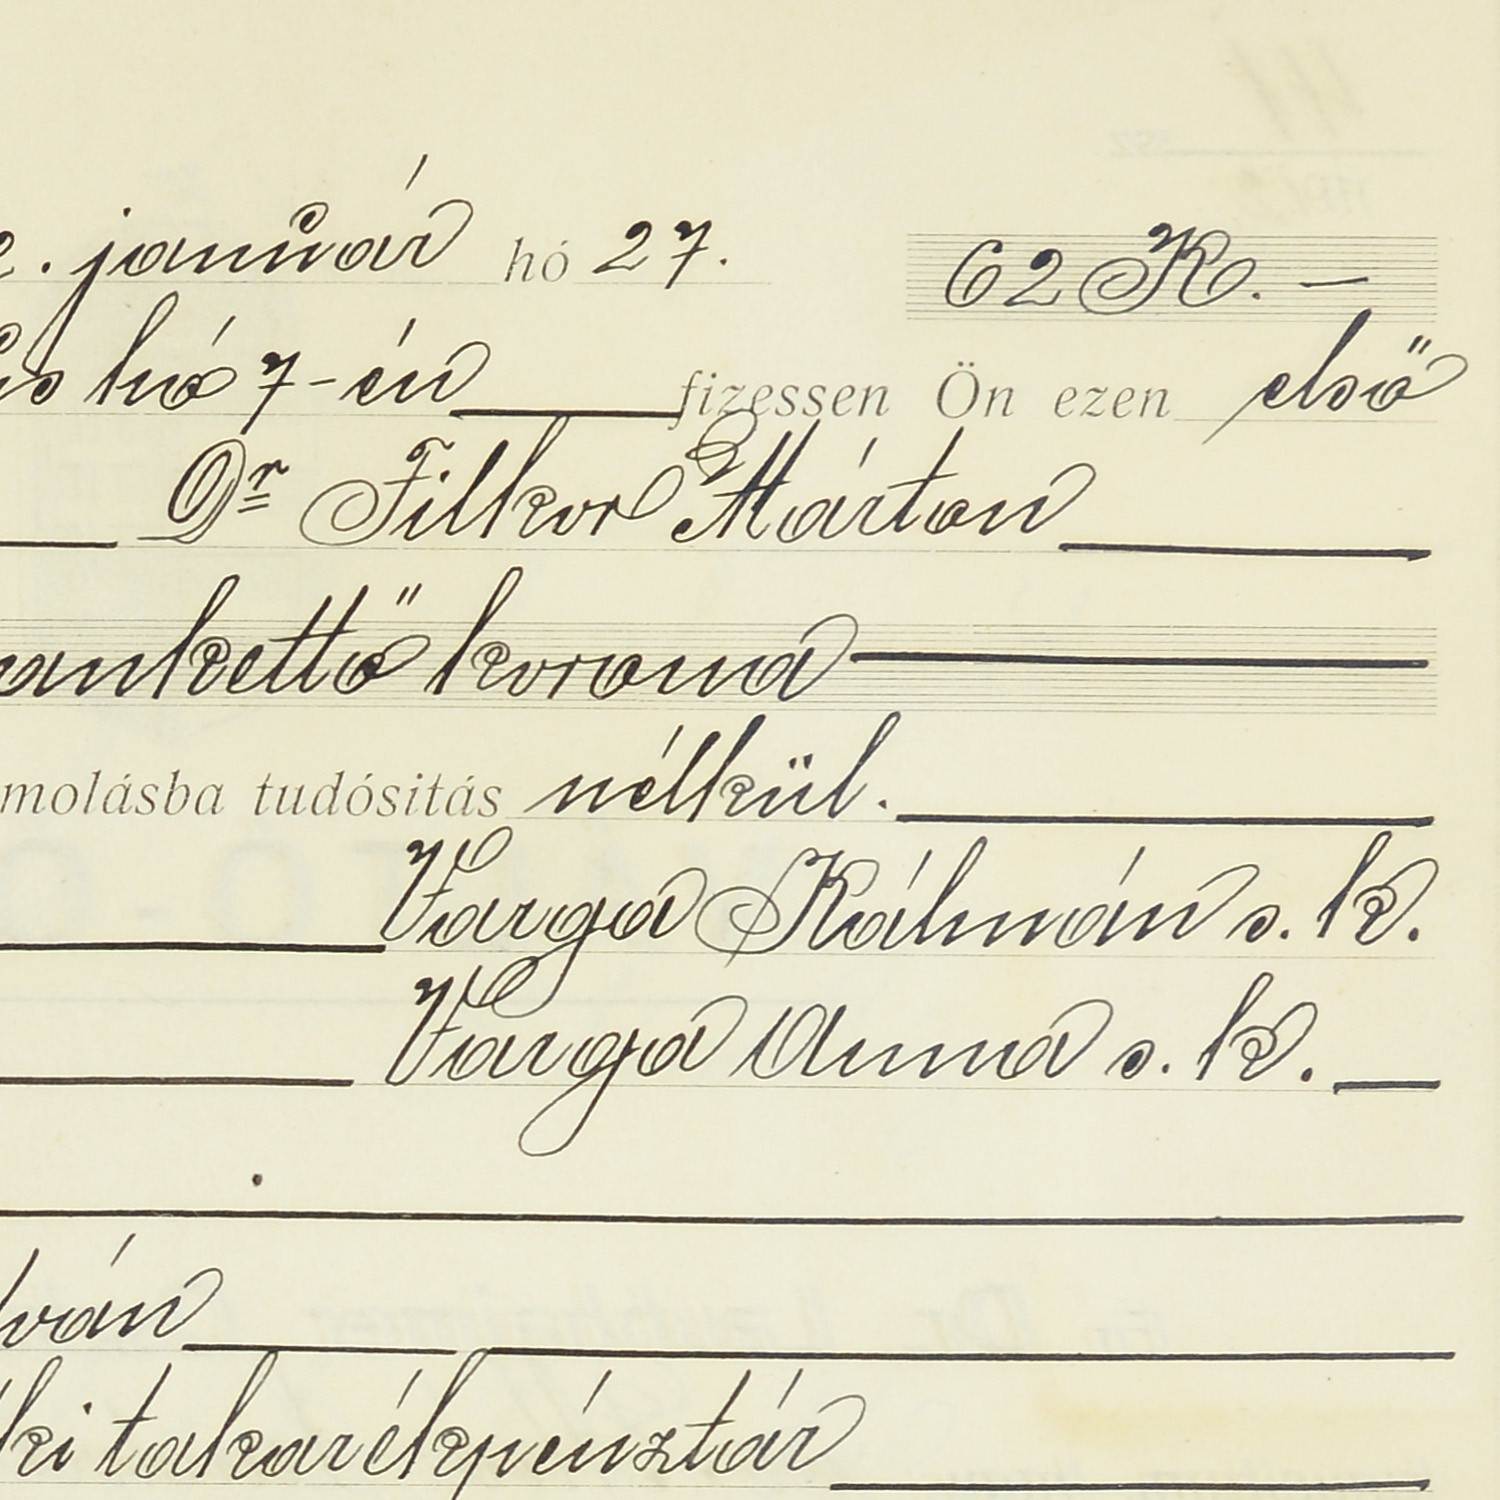 . január hó 27. 62 K. —
hó 7-én fizessen Ön ezen első
Dr Filkor Márton
ankettő korona
molásba tudósitás nélkül.
Varga Kálmán s. k.
Varga Anna s. k.
ván
ki takarékpénztár